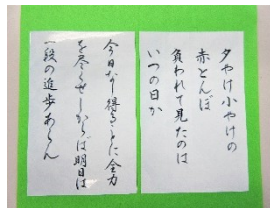 夕やけ小やけの
赤とんぼ
負われて見たのは
いつの日か
今日なし得ることに全力
を尽くせしからば明日は
一段の進歩あらん